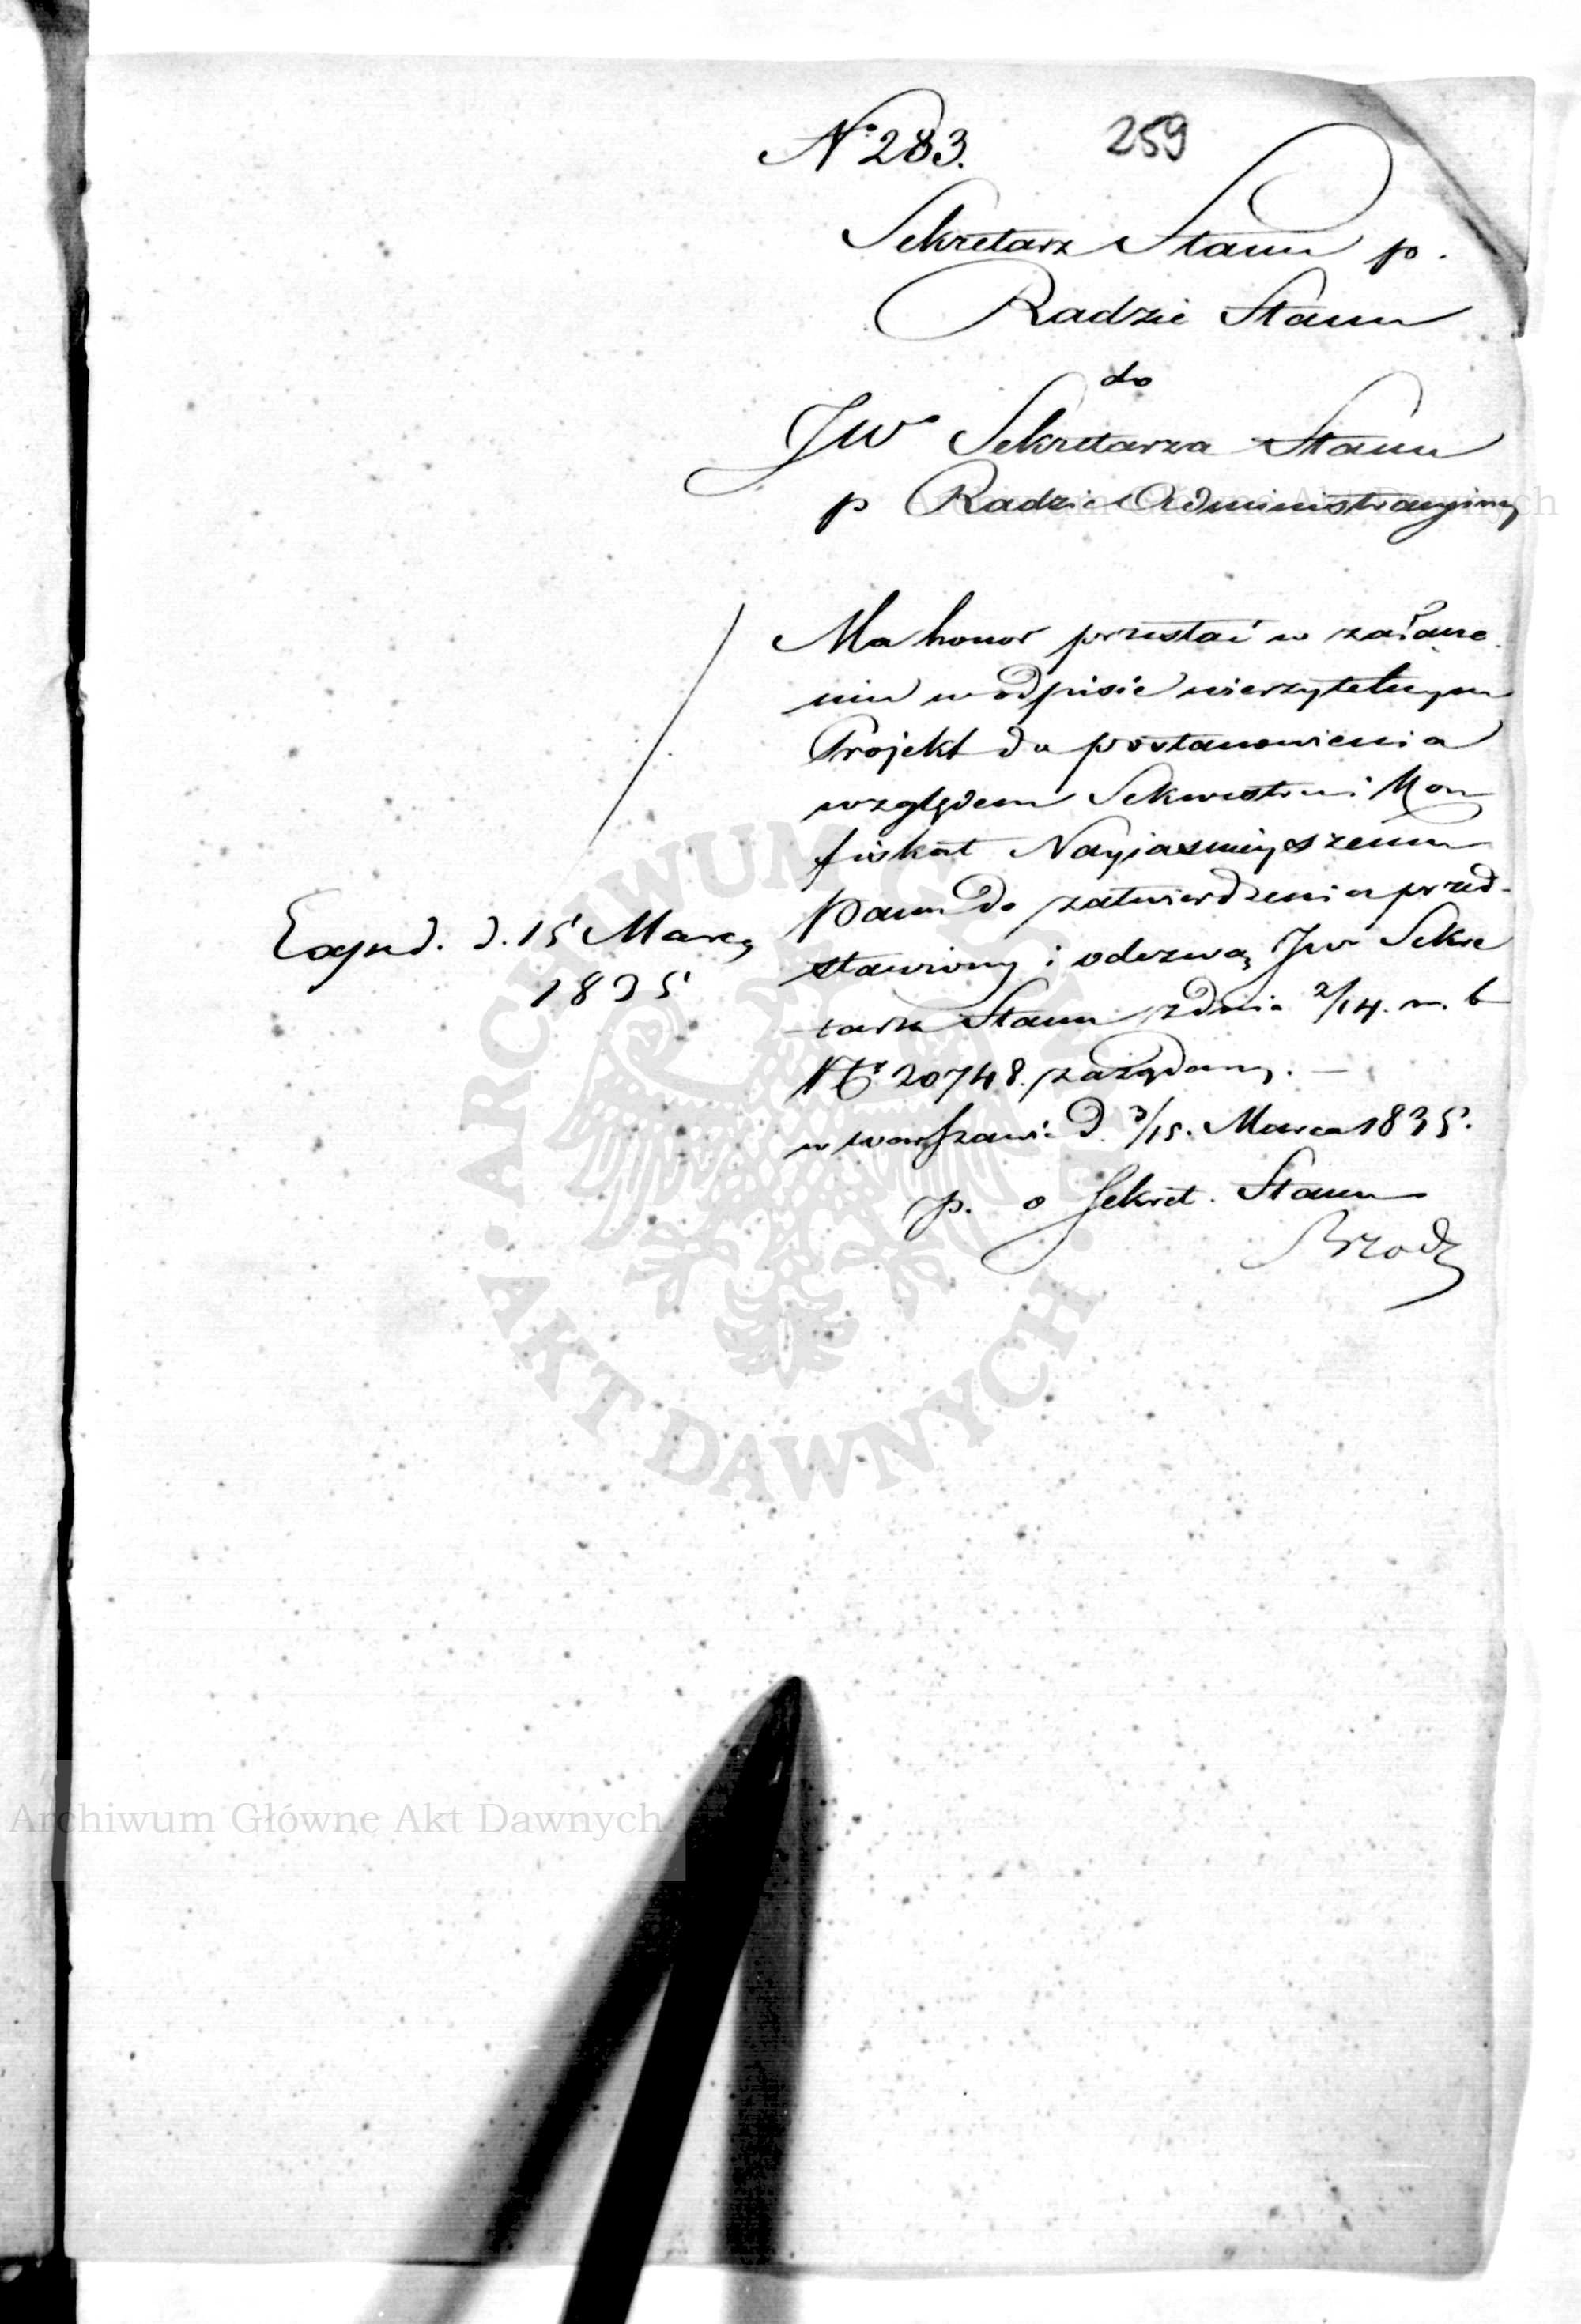 N° 283. 259
Sekretarz Stanu p.
Radzie Stanu
do
JW° Sekretarza Stanu
p Radzie Administracyiney
Ma honor przesłać w załącze
niu w odpisie wierzytelnym
Projekt do postanowienia
względem Sekwestru i Kon
fiskat Nayiaśnieyszemu
Panu do zatwierdzenia przed-
stawiony i odezwą JW Sekre
tarza Stanu z dnia 2/14. m. b
N° 20748. zażądany. —
w Warszawie d. 3/15. Marca 1835.
p. o Sekret. Stanu
Brodz
Exped. d. 15 Marca
1835
ARCHIWUM GŁÓWNE
AKT DAWNYCH
Archiwum Główne Akt Dawnych
Archiwum Główne Akt Dawnych